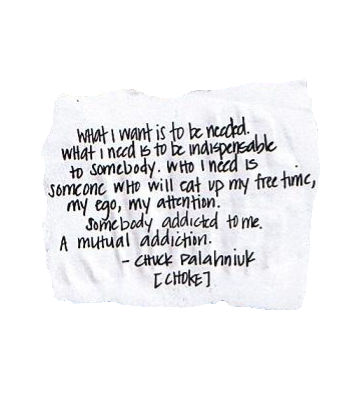 What I want is to be needed.
What I need is to be indispensable
to somebody. Who I need is
someone who will eat up my free time,
my ego, my attention.
somebody addicted to me.
A mutual addiction.
- Chuck Palahniuk
[CHOKE]